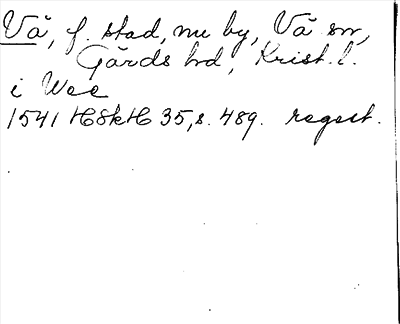 Vä, f. stad, nu by, Vä sn,
Gärds hd, Krist. l.
i Wee
1541 HSkH 35, s. 489. regest.